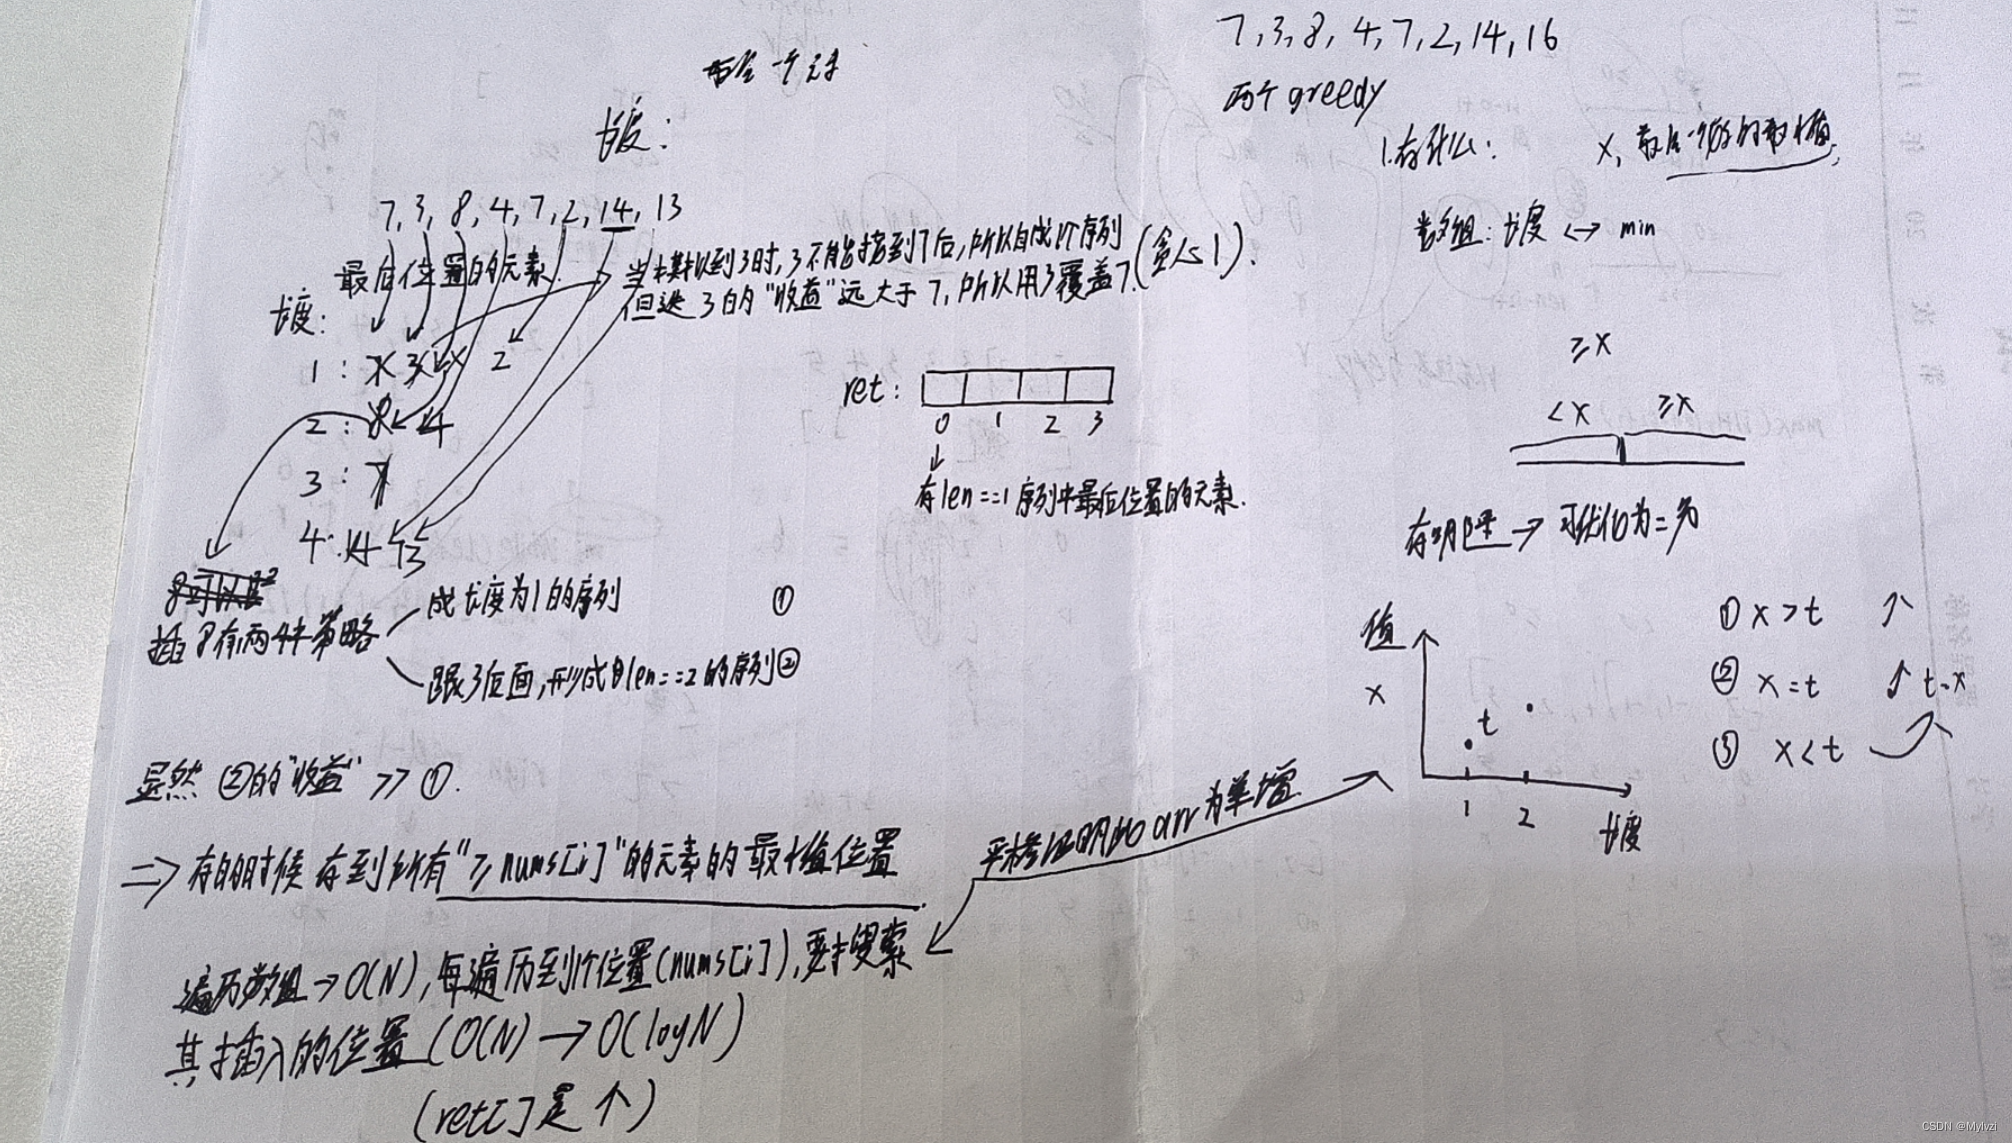 长度:
7, 3, 8, 4, 7, 2, 14, 13
最后位置的元素
长度:
当模拟到3时, 3不能拼接到7后, 所以自成1个序列
但是 3的"收益"远大于 7, 所以用3覆盖7. (贪心1).
1: 7 3 2
2: 8 4
3: 7
4: 14 13
ret:
0 1 2 3
存len==1序列中最后位置的元素.
8可以
插8有两种策略
成长度为1的序列 ①
跟3后面, 形成len==2的序列②
显然 ②的"收益" >> ①.
=> 存的时候 存到所有"≥nums[i]"的元素的最小值位置
遍历数组→O(N), 每遍历到1个位置(nums[i]), 要搜索
其插入的位置 (O(N) → O(logN)
(ret[]是↑)
严格证明 arr为单增
7, 3, 8, 4, 7, 2, 14, 16
两个greedy
1.存什么: x, 最后一个数的最小值.
数组: 长度 <-> min
≥x
<x ≥x
存 → 可优化为=分
值
x
t
1 2
长度
① x>t ↑
② x=t ↑ t-x
③ x<t
CSDN @Mylvzi